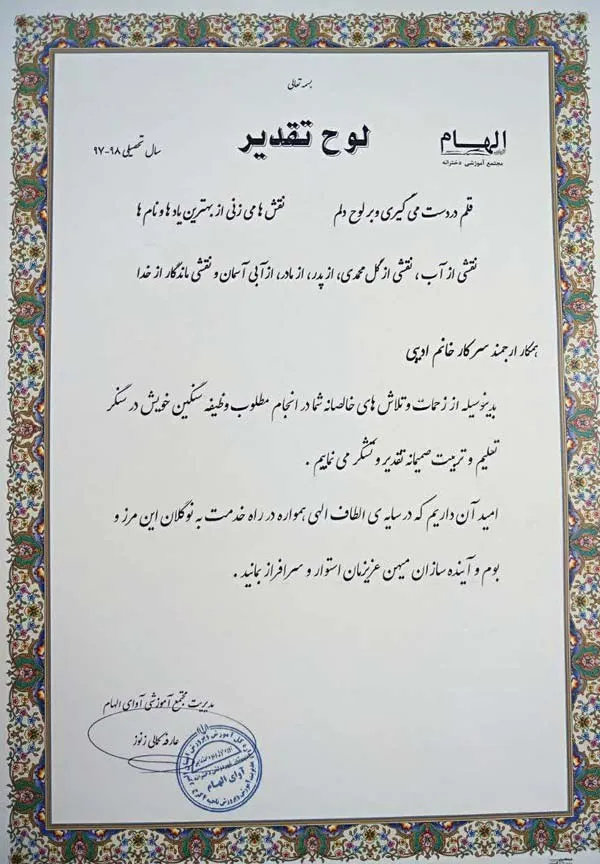 بسمه تعالی
الهام
آوای
مجتمع آموزشی دخترانه
لوح تقدیر
سال تحصیلی ۹۸-۹۷
قلم در دست می گیری و بر لوح دلم نقش ها می زنی از بهترین یادها و نام ها
نقشی از آب ، نقشی از گل محمدی، از پدر، از مادر، از آبی آسمان و نقشی ماندگار از خدا
همکار ارجمند سرکار خانم ادیبی
بدینوسیله از زحمات و تلاش های خالصانه شما در انجام مطلوب وظیفه سنگین خویش در سنگر
تعلیم و تربیت صمیمانه تقدیر و تشکر می نماییم .
امید آن داریم که در سایه ی الطاف الهی همواره در راه خدمت به نوگلان این مرز و
بوم و آینده سازان میهن عزیزمان استوار و سرافراز بمانید .
مدیریت مجتمع آموزشی آوای الهام
عارفه کمالی زنوز
آوای الهام